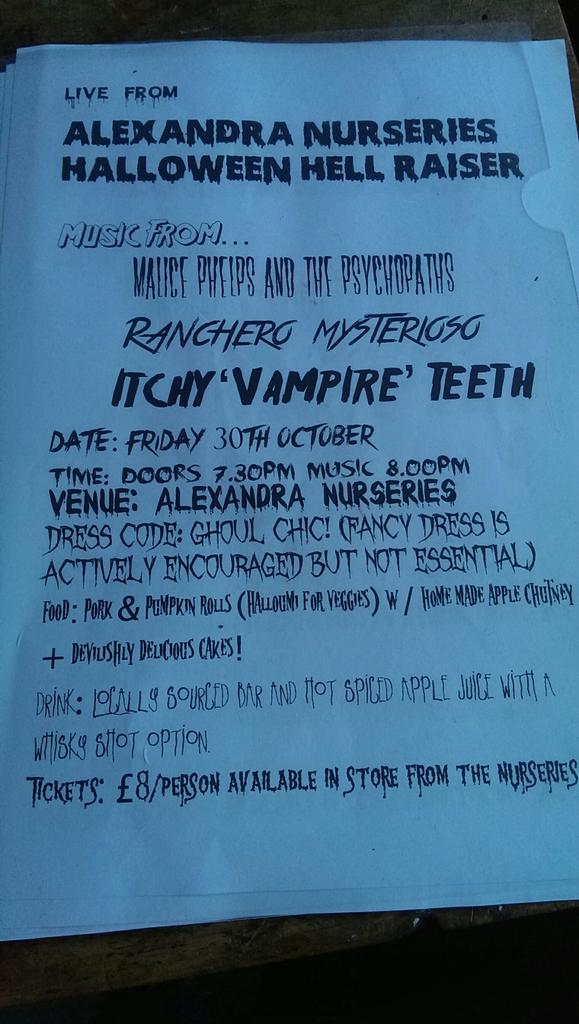 LIVE FROM
ALEXANDRA NURSERIES
HALLOWEEN HELL RAISER
MUSIC FROM...
MALICE PHELPS AND THE PSYCHOPATHS
RANCHERO MYSTERIOSO
ITCHY 'VAMPIRE' TEETH
DATE: FRIDAY 30TH OCTOBER
TIME: DOORS 7.30PM MUSIC 8.00PM
VENUE: ALEXANDRA NURSERIES
DRESS CODE: GHOUL CHIC! (FANCY DRESS IS
ACTIVELY ENCOURAGED BUT NOT ESSENTIAL)
FOOD: PORK & PUMPKIN ROLLS (HALLOUMI FOR VEGGIES) W / HOME MADE APPLE CHUTNEY
+ DEVILISHLY DELICIOUS CAKES!
DRINK: LOCALLY SOURCED BAR AND HOT SPICED APPLE JUICE WITH A
WHISKY SHOT OPTION.
TICKETS: £8/PERSON AVAILABLE IN STORE FROM THE NURSERIES